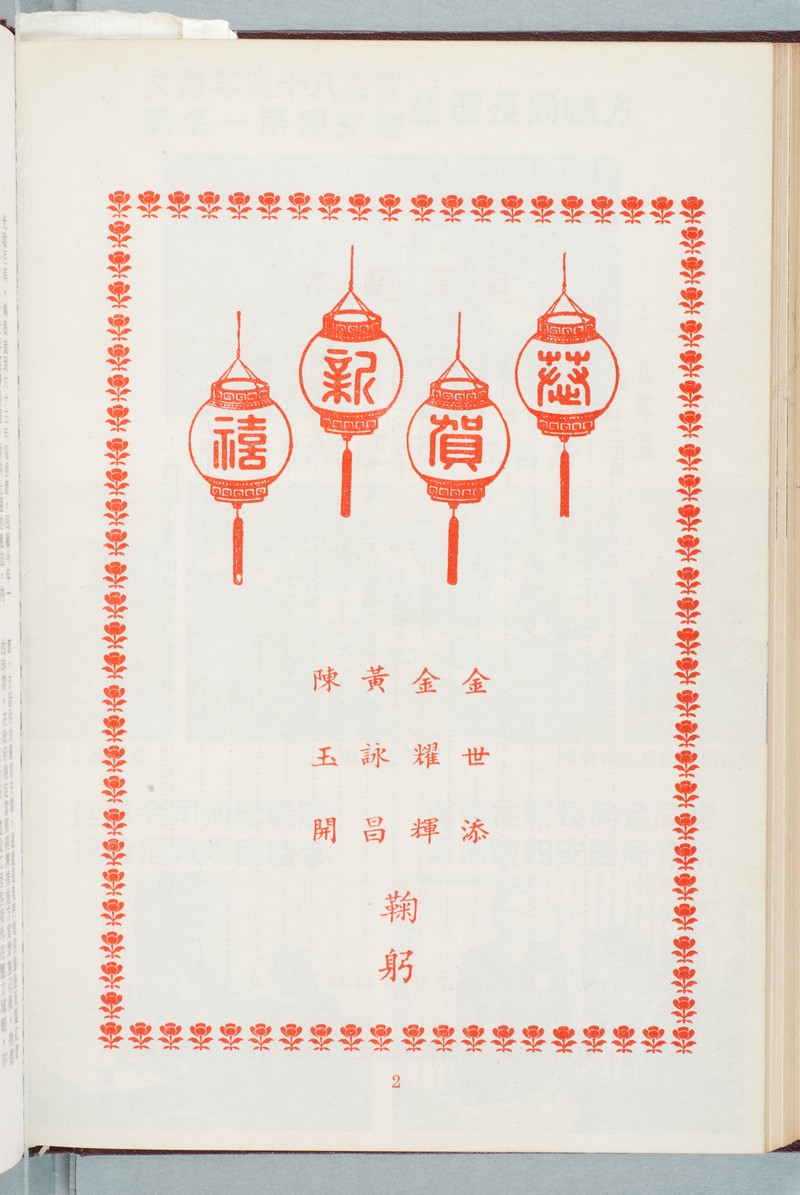 恭賀新禧
金世添
金耀輝
黃詠昌
陳玉開
鞠躬
2